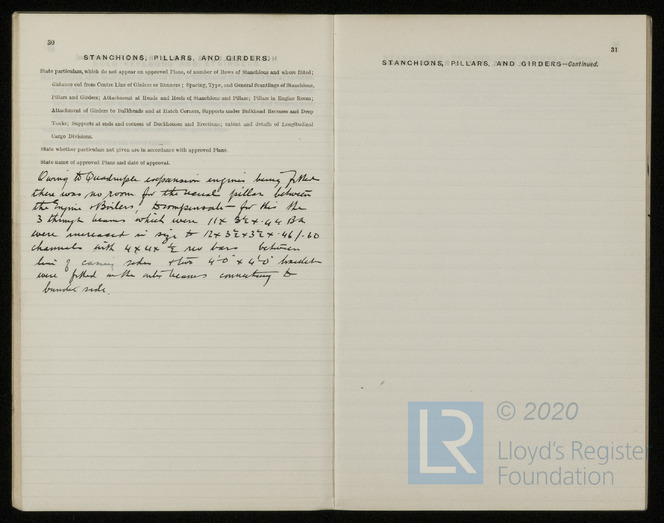 30
STANCHIONS, PILLARS, AND GIRDERS.
State particulars, which do not appear on approved Plans, of number of Rows of Stanchions and where fitted;
distance out from Centre Line of Girders or Runners; Spacing, Type, and General Scantlings of Stanchions,
Pillars and Girders; Attachment at Heads and Heels of Stanchions and Pillars; Pillars in Engine Room;
Attachment of Girders to Bulkheads and at Hatch Corners, Supports under Bulkhead Recesses and Deep
Tanks; Supports at ends and corners of Deckhouses and Erections; extent and details of Longitudinal
Cargo Divisions.
State whether particulars not given are in accordance with approved Plans.
State name of approved Plans and date of approval.
Owing to Quadruple expansion engines being fitted
there was no room for the usual pillar between
the Engine & Boilers, to compensate for this the
3 through beams which were 11 x 3½ x .44 BA
were increased in size to 12 x 3½ x 3½ x .46/.60
channels with 4 x 4 x ½ rev bars between
line of casing sides & two 4'0" x 4'0" brackets
were fitted in the outer beams connecting to
bunker side.
31
STANCHIONS, PILLARS, AND GIRDERS—Continued.
LR
© 2020
Lloyd's Register
Foundation